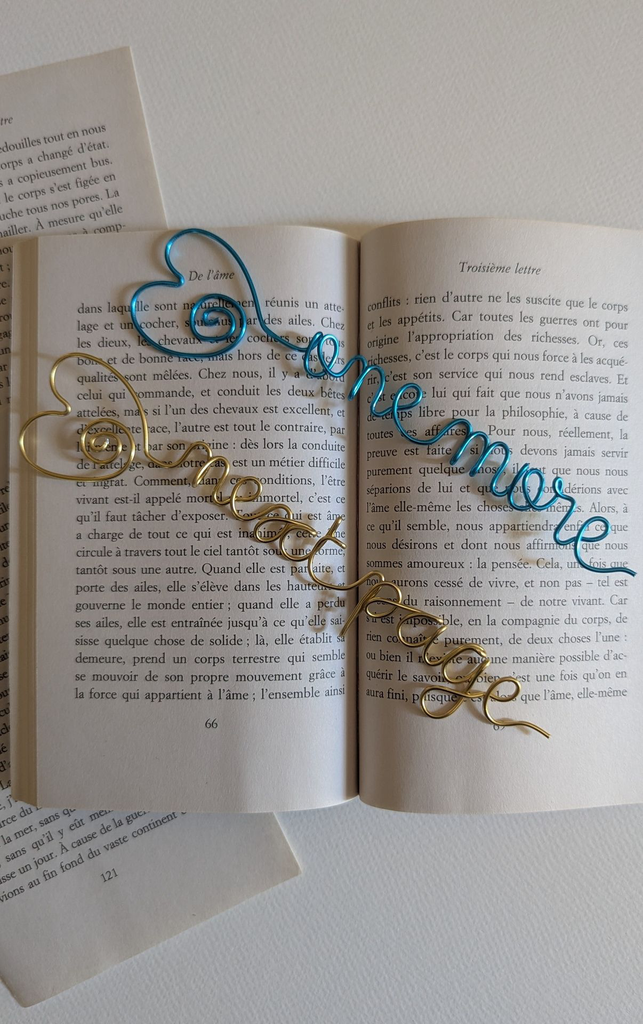 tout en nous
a changé d'état.
a copieusement bus.
le corps s'est figée en
tous nos pores. La
À mesure qu'elle
à comp-
De l'âme
dans laquelle sont naturellement réunis un atte-
lage et un cocher, par des ailes. Chez
les dieux, les chevaux et les cochers sont tous
bons et de bonne race, mais hors de ce
qualités sont mêlées. Chez nous, il y a d'abord
celui qui commande, et conduit les deux bêtes
attelées, mais si l'un des chevaux est excellent, et
d'excellente race, l'autre est tout le contraire, par
et par son origine : dès lors la conduite
de l'attelage, dans notre cas est un métier difficile
et ingrat. Comment, dans ces conditions, l'être
vivant est-il appelé mortel et immortel, c'est ce
qu'il faut tâcher d'exposer. Tout ce qui est âme
a charge de tout ce qui est inanimé ; cette âme
circule à travers tout le ciel tantôt sous une forme,
tantôt sous une autre. Quand elle est parfaite, et
porte des ailes, elle s'élève dans les hauteurs et
gouverne le monde entier ; quand elle a perdu
ses ailes, elle est entraînée jusqu'à ce qu'elle sai-
sisse quelque chose de solide ; là, elle établit sa
demeure, prend un corps terrestre qui semble
se mouvoir de son propre mouvement grâce à
la force qui appartient à l'âme ; l'ensemble ainsi
66
Troisième lettre
conflits ; rien d'autre ne les suscite que le corps
et les appétits. Car toutes les guerres ont pour
origine l'appropriation des richesses. Or, ces
richesses, c'est le corps qui nous force à les acqué-
rir, c'est son service qui nous rend esclaves. Et
c'est encore lui qui fait que nous n'avons jamais
de temps libre pour la philosophie, à cause de
toutes ces affaires. Pour nous, réellement, la
preuve est faite : si nous devons jamais servir
purement quelque chose, il faut que nous nous
séparions de lui et que nous considérions avec
l'âme elle-même les choses Alors, à
ce qu'il semble, nous appartiendra enfin ce que
nous désirons et dont nous affirmons que nous
sommes amoureux : la pensée. Cela, une fois que
nous aurons cessé de vivre, et non pas – tel est
le sens du raisonnement – de notre vivant. Car
s'il est impossible, en la compagnie du corps, de
rien connaître purement, de deux choses l'une :
ou bien il n'existe aucune manière possible d'ac-
quérir le savoir, ou bien c'est une fois qu'on en
aura fini, puisque c'est alors que l'âme, elle-même
one more
next page
la mer, sans
sans qu'il y eût
un jour. À cause de la
au fin fond du vaste continent
121